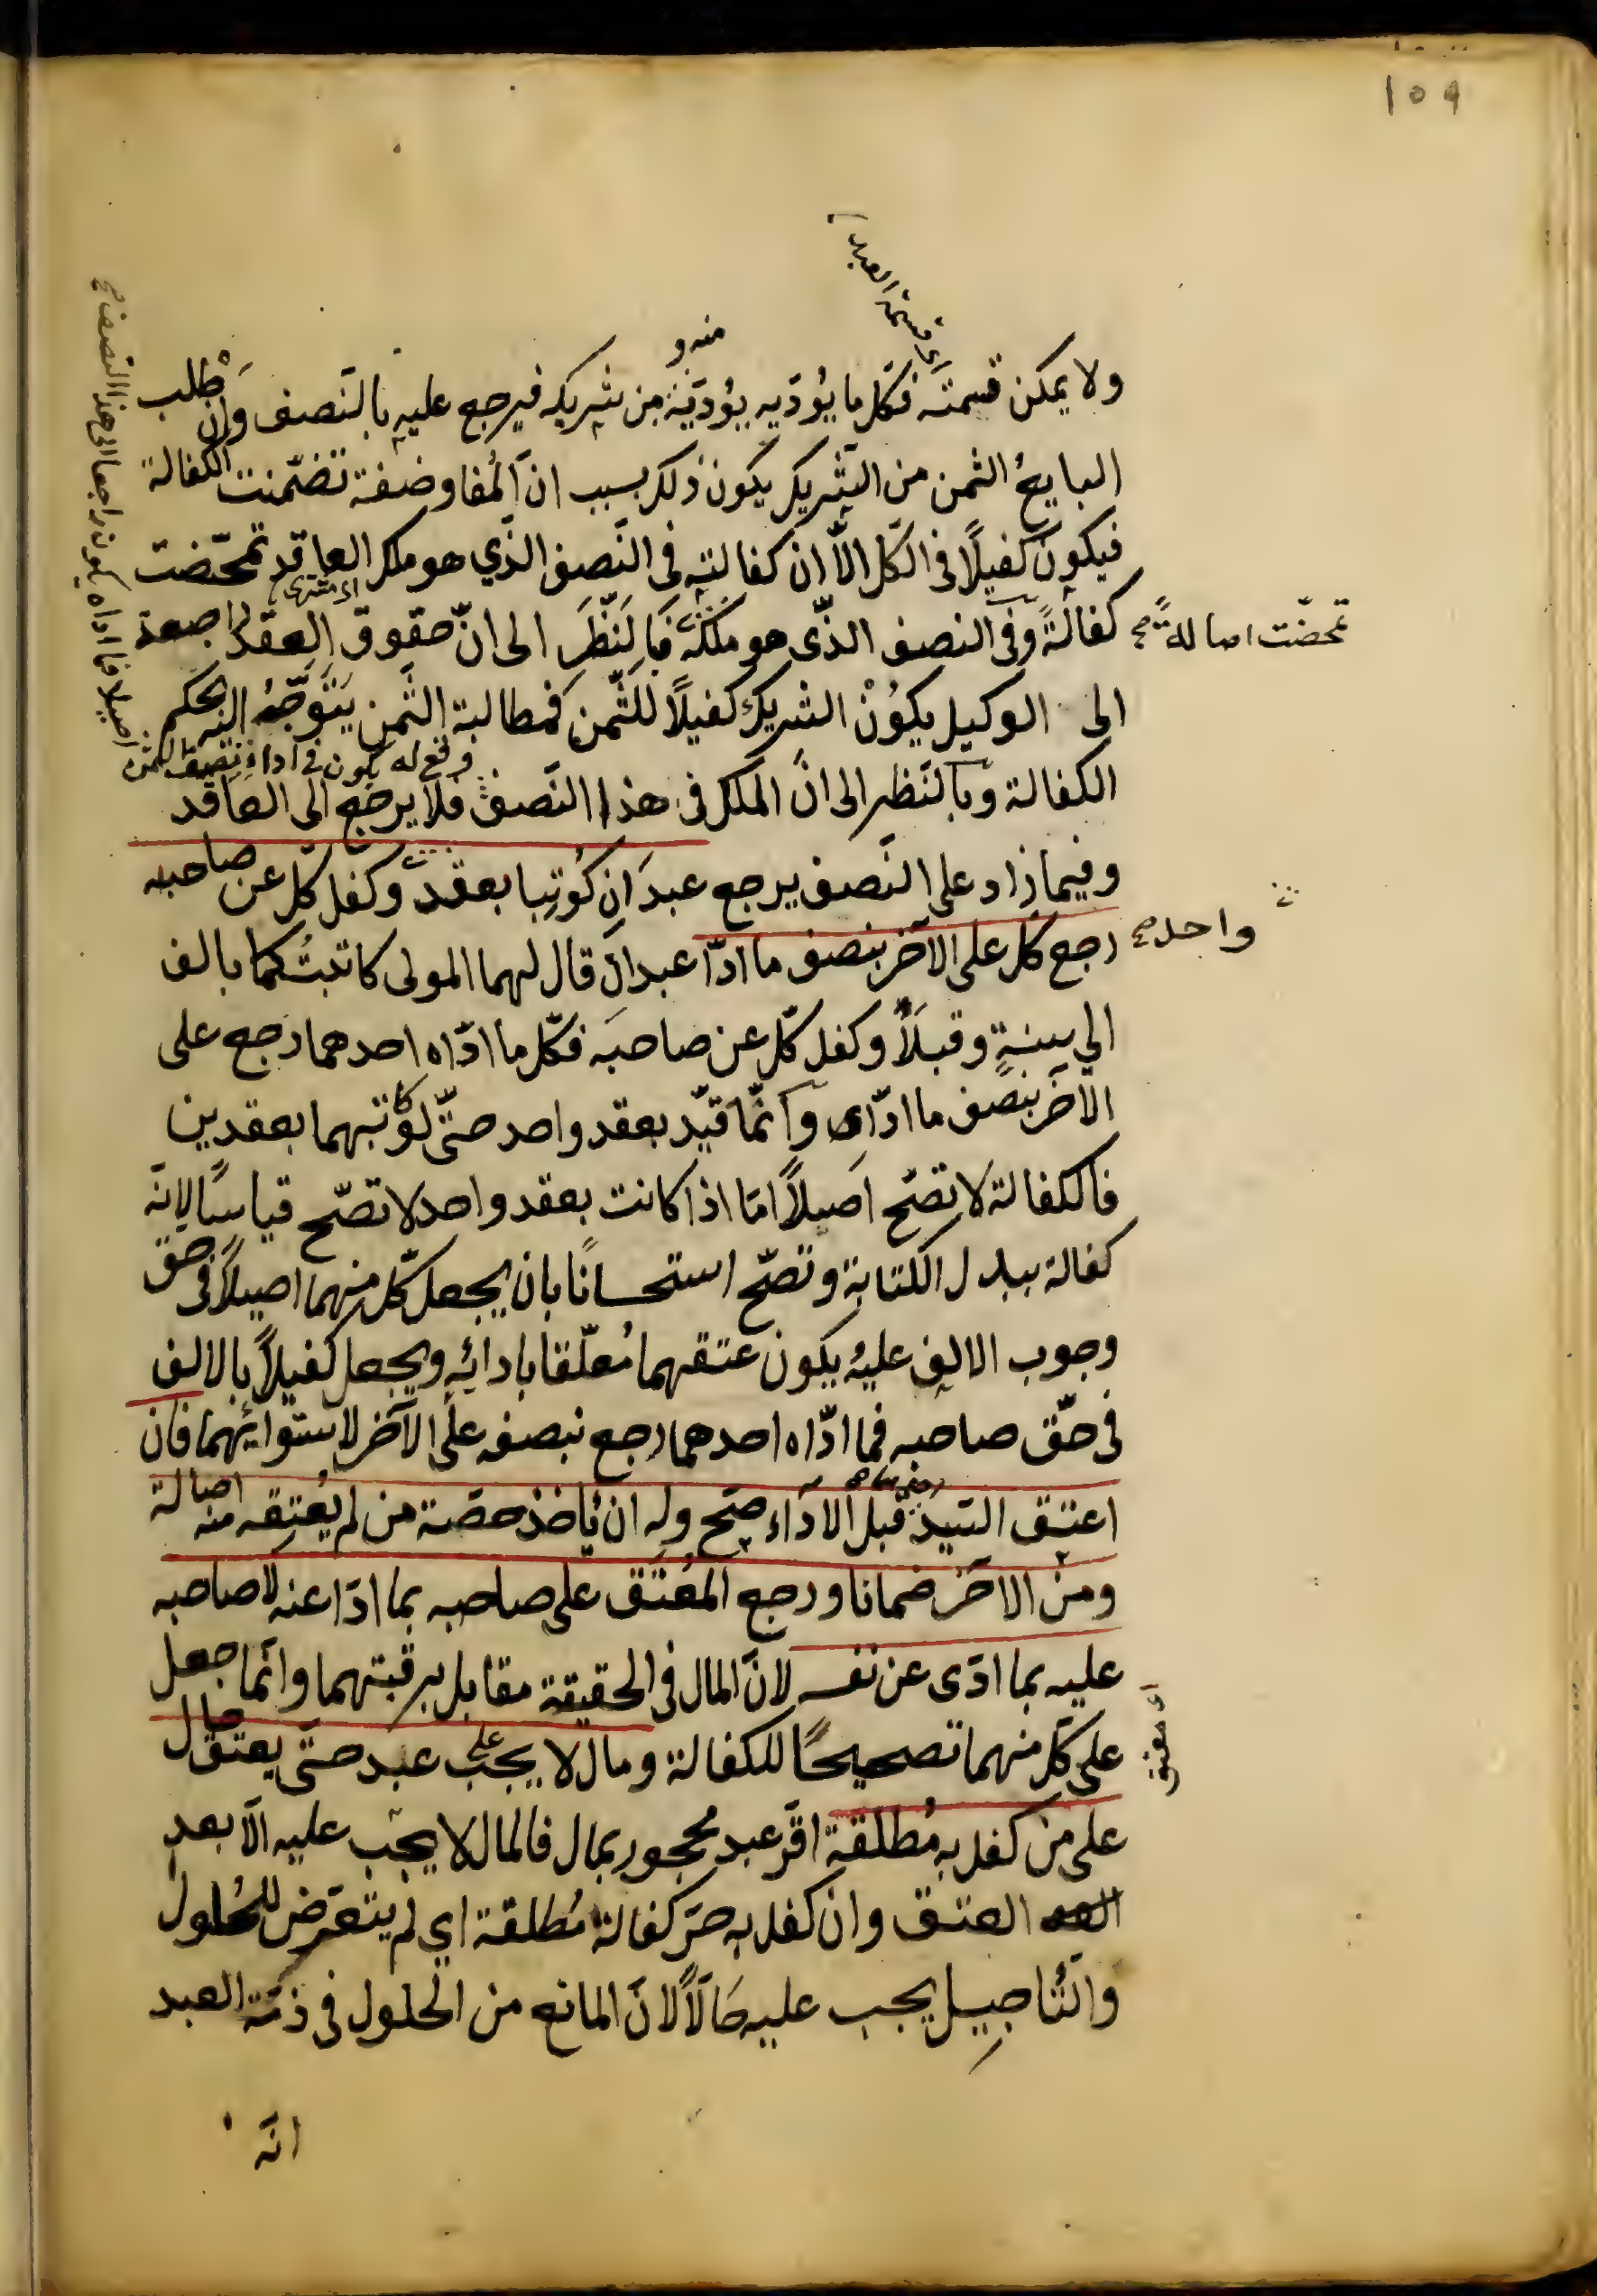 ١٥٩
اى قسمة العبد
منه و
ولا يمكن قسمته فكل ما يُؤدّيه يؤدّيه من شريكه فيرجع عليه بالنصف وان طلب
البايع الثمن من الشريك يكون ذلك بسبب ان المُفاوضة تضمّنت الكفالة
فيكون كفيلًا فى الكل الّا ان كفالته فى النّصف الذي هو ملك العاقد تمحّضت
اى مشترى
كفالةً وفى النصف الذّى هو ملكه فبالنّظر الى انّ حقوق العقد راجعة
تمحضّت اصالةً صح
الى الوكيل يكوُنْ الشريك كفيلًا للثّمن فمطالبة الثّمن يَتَوَجّهُ اليه بحكم
الكفالة وبالنّظر الى انّ الملك فى هذا النّصف فلا يرجع الى العاقد
وقع له يكون فى اداء نصف الثمن
اصيلا فما اداه يكون راجعا الى هذا النصف صح
وفيما زاد على النّصف يرجع عبدَانِ كُوتِبا بعقد وكفل كلّ عن صاحبه
واحد صح
رجع كل على الآخر بنصف ما ادّا عبدان قال لهما المولى كاتبتُكما بالف
الي سنةٍ وقبلَا وكفل كلّ عن صاحبه فكلّ ما ادّاه احدهما رجع على
الآخر بنصف ما ادّاى وانّما قيّد بعقد واحد حتّى لو كاتبهما بعقدين
فالكفالة لا تصحّ اصيلًا امّا اذا كانت بعقد واحد لا تصّح قياسًا لانّه
كفالة ببدل الكتابة وتصّح استحسانًا بان يجعل كلّ منهما اصيلًا فى حق
وجوب الالف عليه يكون عتقهما مُعلّقا بادائِه ويجعل كفيلًا بالالف
فى حقّ صاحبه فما ادّاه احدهما رجع بنصفه على الآخر لاستوائهما فان
اعتق السّيد قبل الاداء صحّ وله ان يأخذ حصّة من لم يُعتِقه منه اصالة
ومن الآخر ضمانا ورجع المُعتَق على صاحبه بما ادّا عنه لا صاحبه
عليه بما ادّى عن نفسه لانّ المال فى الحقيقة مقابل برقبتهما وانّما جعل
اى معتق
على كل منهما تصحيحًا للكفالة ومال لا يجب على عبد حتّى يعتق حال
على من كفل به مُطلقة اقّر عبد محجور بمال فالمال لا يجب عليه الّا بعد
العتق وان كفل به حرّ كفالة مُطلقة اي لم يتعرّض للحُلول
والتّأجيل يجب عليه حَالًا لانّ المانع من الحلول فى ذمّة العبد
انّه